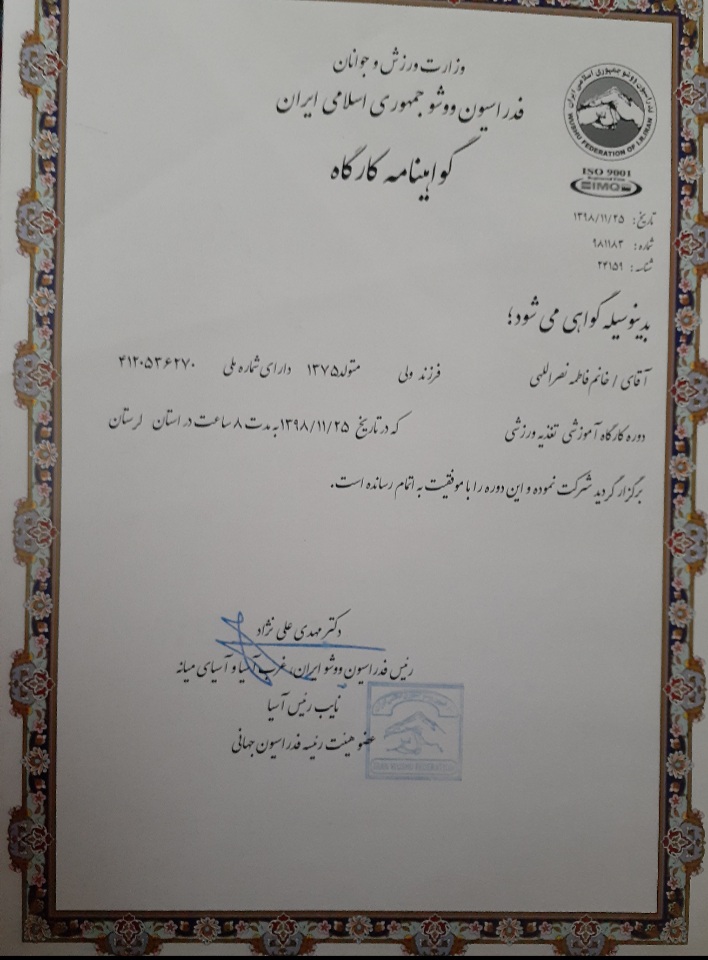 وزارت ورزش و جوانان
فدراسیون ووشو جمهوری اسلامی ایران
گواهینامه کارگاه
فدراسیون ووشو جمهوری اسلامی ایران
WUSHU FEDERATION OF I.R.IRAN
ISO 9001
IMQ
تاریخ: ۱۳۹۸/۱۱/۲۵
شماره: ۹۸۱۱۸۳
شناسه: ۲۴۱۵۹
بدینوسیله گواهی می شود؛
آقای / خانم فاطمه نصراللهی فرزند ولی متولد ۱۳۷۵ دارای شماره ملی ۴۱۲۰۵۳۶۲۷۰
دوره کارگاه آموزشی تغذیه ورزشی که در تاریخ ۱۳۹۸/۱۱/۲۵ به مدت ۸ ساعت در استان لرستان
برگزار گردید شرکت نموده و این دوره را با موفقیت به اتمام رسانده است.
دکتر مهدی علی نژاد
رئیس فدراسیون ووشو ایران، غرب آسیا و آسیای میانه
نایب رئیس آسیا
عضو هیئت رئیسه فدراسیون جهانی